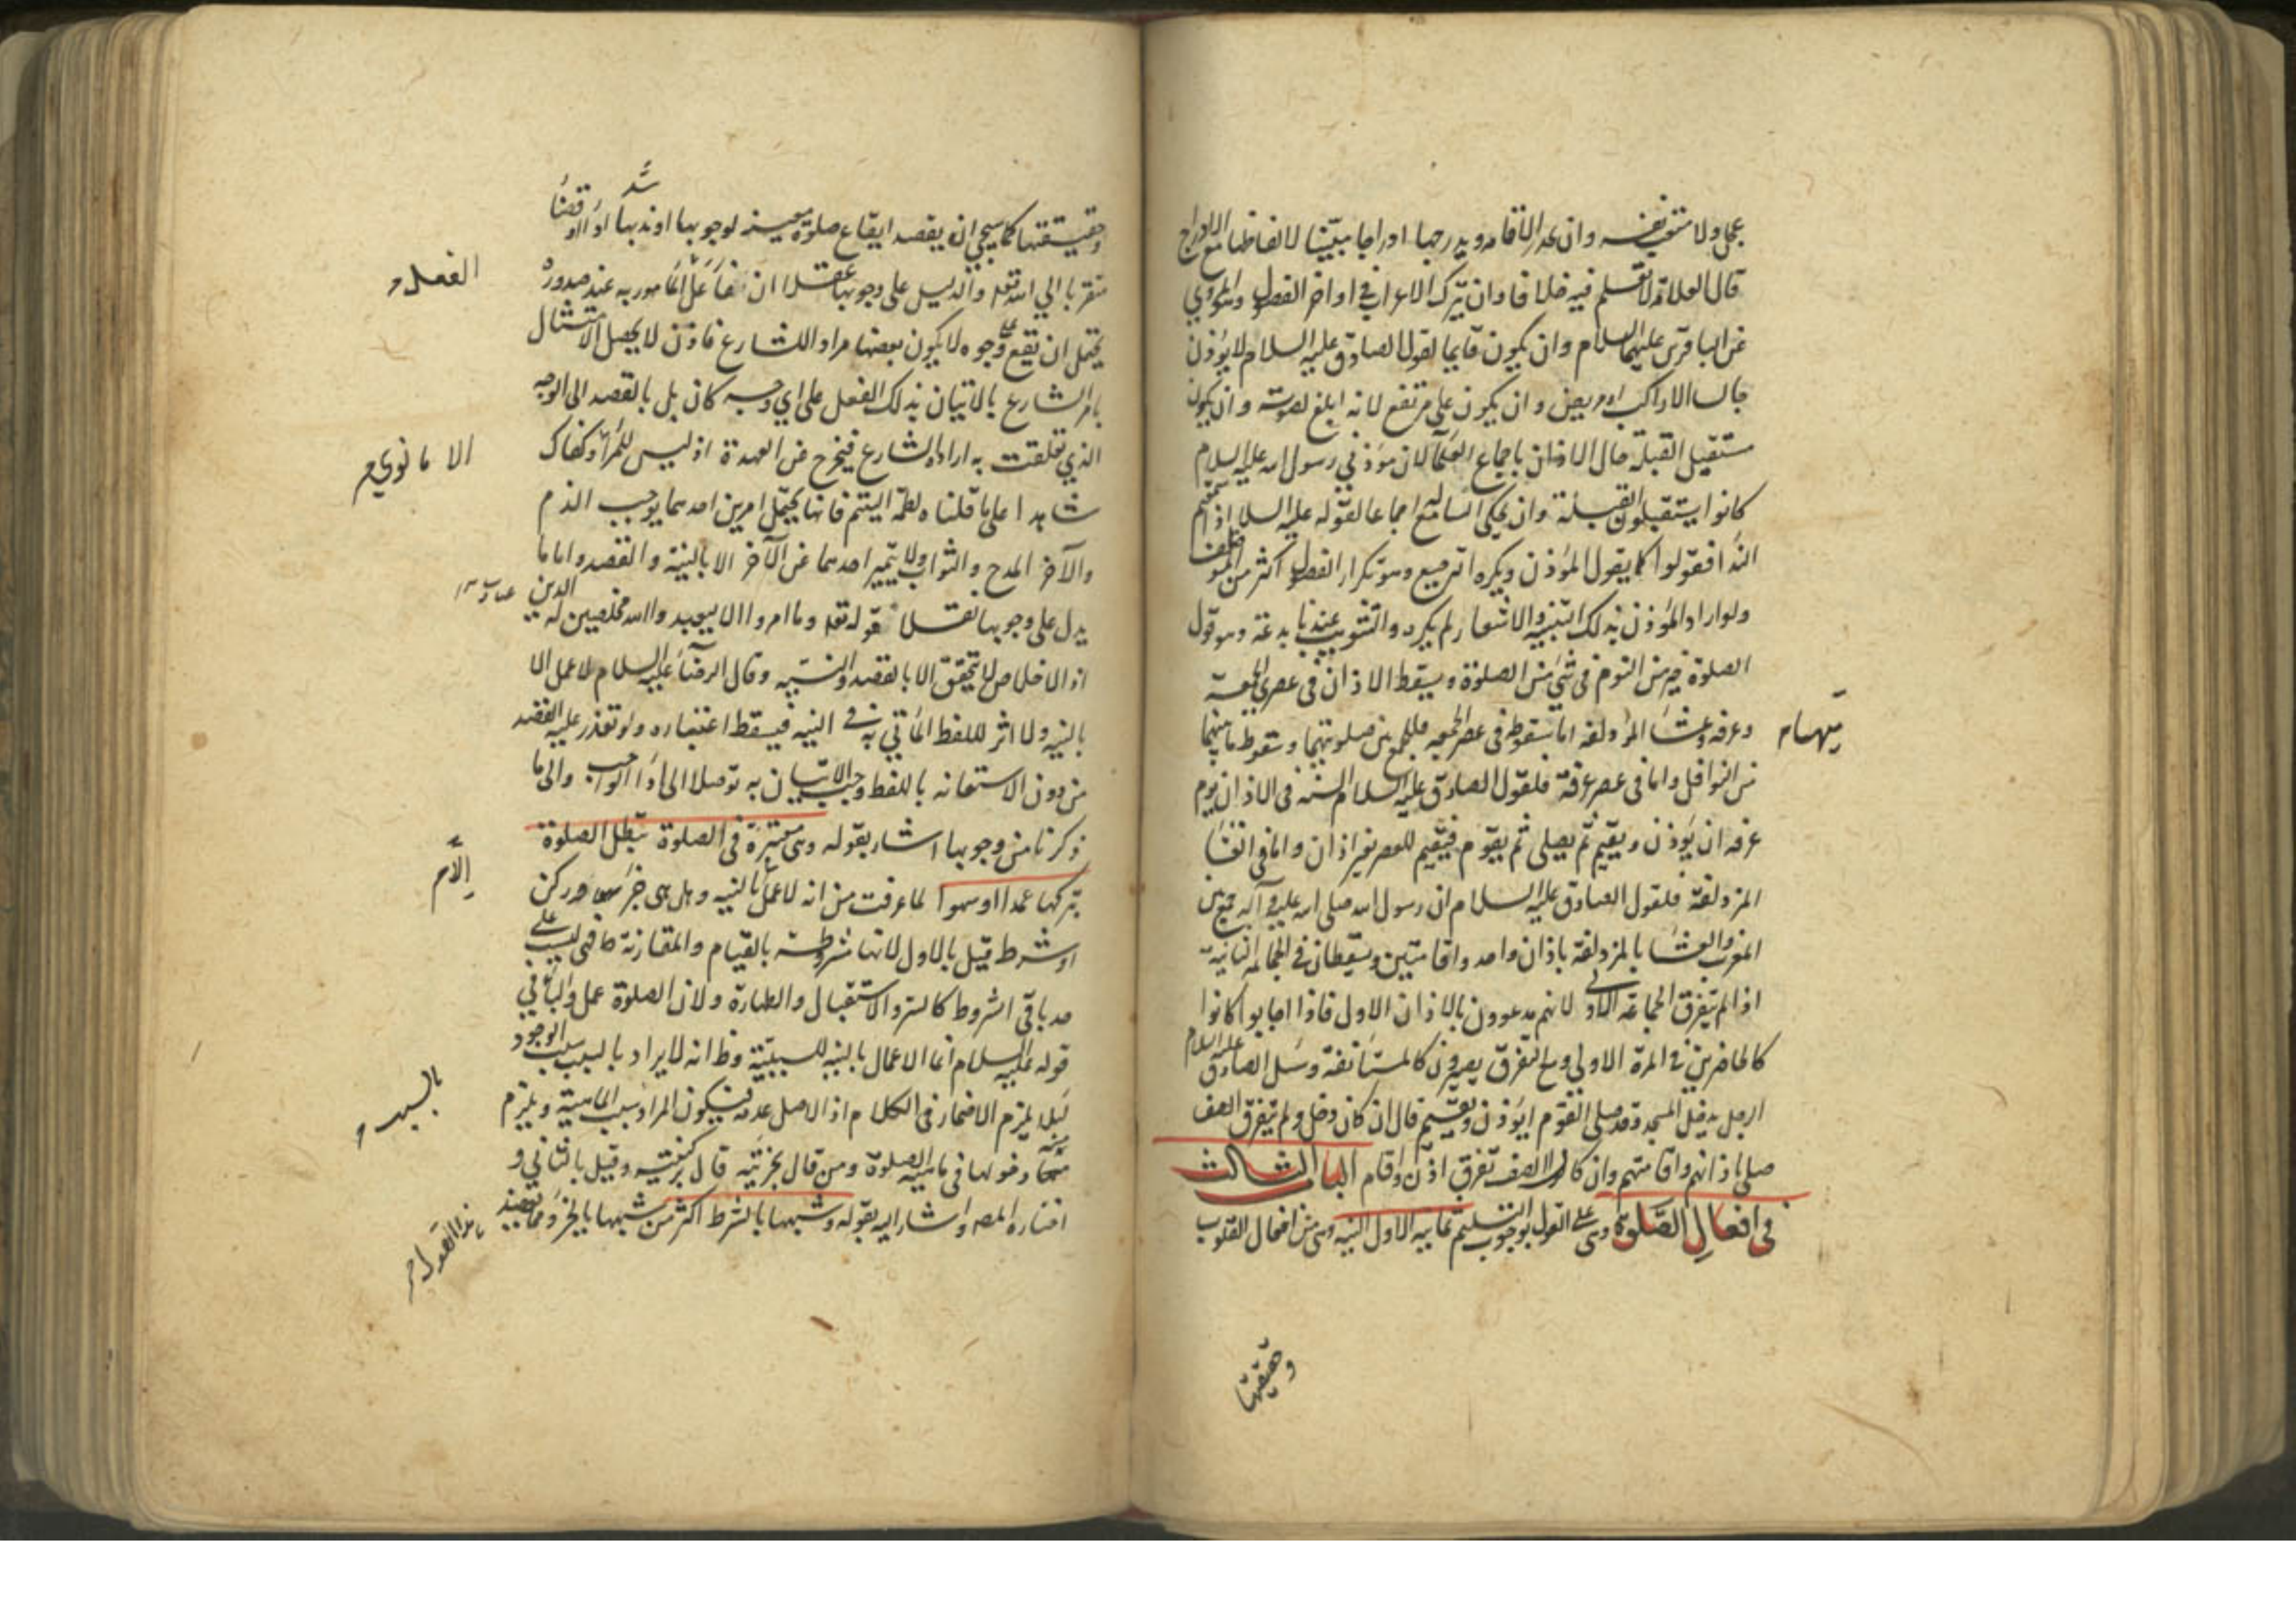 عجل ولا متعب نفسه وان يحدر الاقامه ويدرجها ادراجا مبينا لالفاظها مع الادراج
قال العلامة لا نعلم فيه خلافا وان يترك الاعراب في اواخر الفصول وهو المروي
عن الباقرين عليهما السلام وان يكون قايما لقول الصادق عليه السلام لا يؤذن
جالسا الا راكب او مريض وان يكون على مرتفع لانه ابلغ لصوته وان يكون
مستقبل القبلة حال الاذان باجماع العلمآ لان مؤذني رسول الله عليه السلام
كانوا يستقبلون القبلة وان يحكي السامع له اجماعا لقوله عليه السلام اذا سمعتم
الندا فقولوا كما يقول المؤذن ويكره الترجيع وهو تكرار الفصول اكثر من الموظف
ولو اراد المؤذن بذلك التنبيه والاشعار لم يكره والتثويب عندنا بدعة وهو قول
الصلوة خير من النوم في شئ من الصلوة ويسقط الاذان في عصري الجمعة
وعرفه وعشا المزدلفه اما سقوطه في عصر الجمعه فللجمع بين صلوتيهما وسقوط ما بينهما
من النوافل واما في عصر عرفة فلقول الصادق عليه السلام السنه في الاذان يوم
عرفه ان يؤذن ويقيم ثم يصلي ثم يقوم فيقيم للعصر بغير اذان واما في العشا
المزدلفة فلقول الصادق عليه السلام ان رسول الله صلى الله عليه وآله جمع بين
المغرب والعشا بالمزدلفة باذان واحد واقامتين ويسقطان في الجماعة الثانية
اذا لم يتفرق الجماعة الاولى لانهم مدعوون بالاذان الاول فاذا اجابوا كانوا
كالحاضرين في المرة الاولي ومع التفرق يصيرون كالمستأنفة وسئل الصادق عليه السلام
الرجل يدخل المسجد وقد صلى القوم ايؤذن ويقيم قال ان كان دخل ولم يتفرق الصف
صلى باذانهم واقامتهم وان كان الصف تفرق اذن واقام الباب الثالث
في افعال الصلوة وهي على القول بوجوب التسليم ثمانيه الاول النيه وهي من افعال القلوب
وحقيقتها
وحقيقتها كما سيجي ان يقصد ايقاع صلوة معينه لوجوبها او ندبها اداً او قضاً
متقربا الي الله تعه والدليل على وجوبها عقلا ان المامور به عند صدوره
يحتمل ان يقع على وجوه لا يكون بعضها مرادا للشارع فاذن لا يحصل الامتثال
بامر الشارع بالاتيان بذلك الفعل على اي وجه كان بل بالقصد الى الوجه
الذي تعلقت به ارادة الشارع فيخرج عن العهدة اذ ليس للمرأ وكفاك
الا ما نوي
شاهدا على ما قلناه لطمة اليتيم فانها يحتمل امرين احدهما يوجب الذم
والآخر المدح والثواب ولا يتميز احدهما عن الآخر الا بالنية والقصد واما ما
يدل على وجوبها نقلا قوله تعه وما امروا الا ليعبدوا الله مخلصين له الدين
اذ الاخلاص لا يتحقق الا بالقصد والنيه وقال الرضآ عليه السلام لا عمل الا
بالنيه ولا اثر للفظ المأتي به في النيه فيسقط اعتباره ولو تعذر عليه القصد
من دون الاستعانه باللفظ وجب الاتيان به توصلا الى ادآ الواجب والى ما
ذكرنا من وجوبها اشار بقوله وهي معتبرة في الصلوة تبطل الصلوة
بتركها عمدا او سهوا لما عرفت من انه لا عمل بالنيه وهل هي جزء او ركن
الا
او شرط قيل بالاول لانها مشروطة بالقيام والمقارنة
باقي الشروط كالستر والاستقبال والطهارة ولان الصلوة عمل والباء في
قوله عليه السلام انما الاعمال بالنيه للسببية وظ انه لا يراد بالسبب سبب الوجود
لئلا يلزم الاضمار في الكلام اذ الاصل عدمه فيكون المراد سبب الماهية ويلزم
دخولها في ماهية الصلوة ومن قال بجزئيته قال بركنيته وقيل بالثاني و
اختاره المصه واشار اليه بقوله وشبهها بالشرط اكثر من شبهها بالجزء